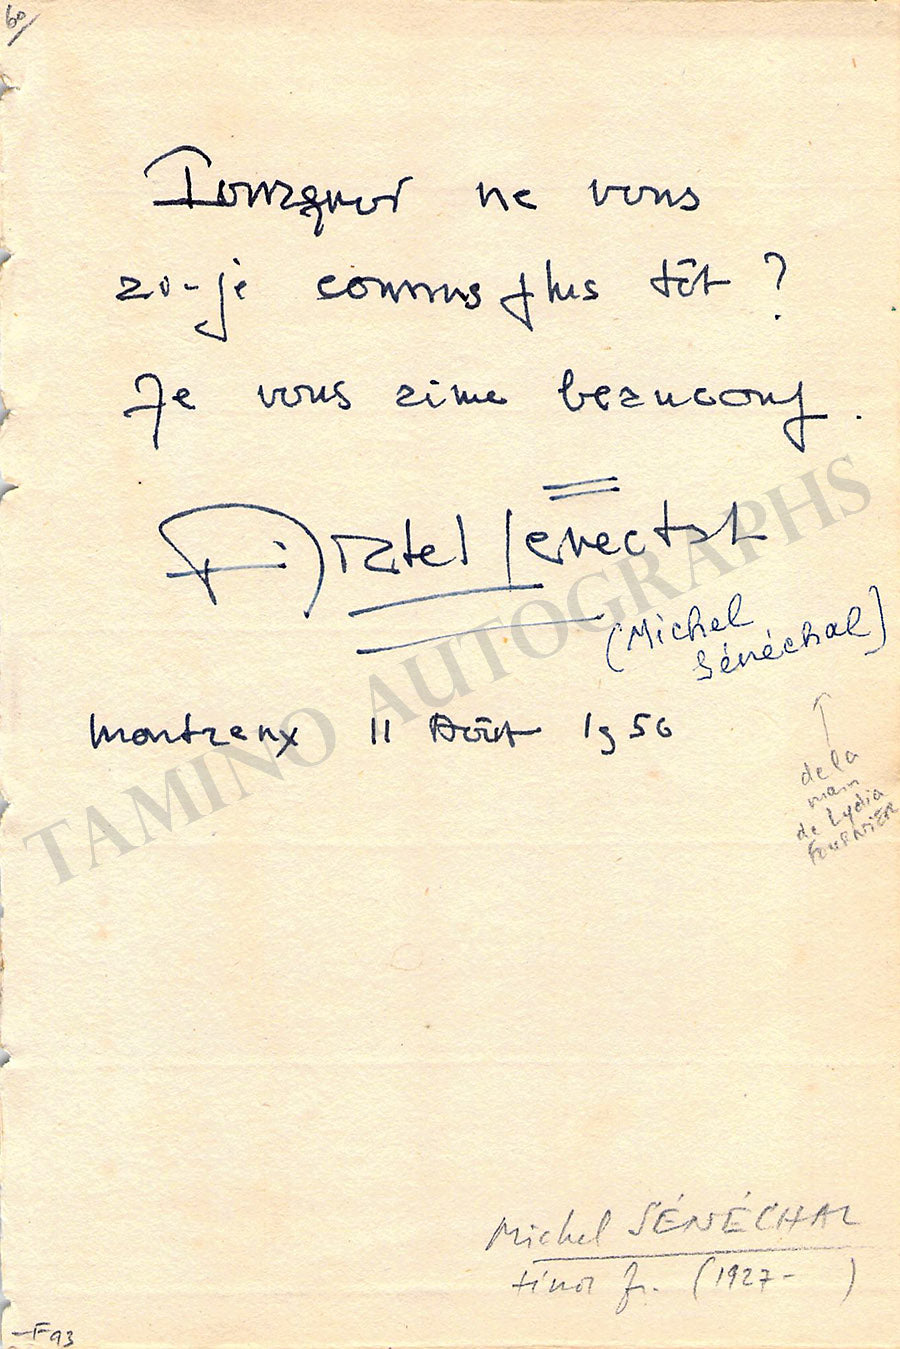 60/
Pourquoi ne vous
ai-je connus plus tôt ?
Je vous aime beaucoup.
Michel Sénéchal
(Michel
Sénéchal)
Montreux 11 Août 1956
de la
main
de Lydia
FOURNIER
TAMINO AUTOGRAPHS
Michel SÉNÉCHAL
ténor fr. (1927- )
F93